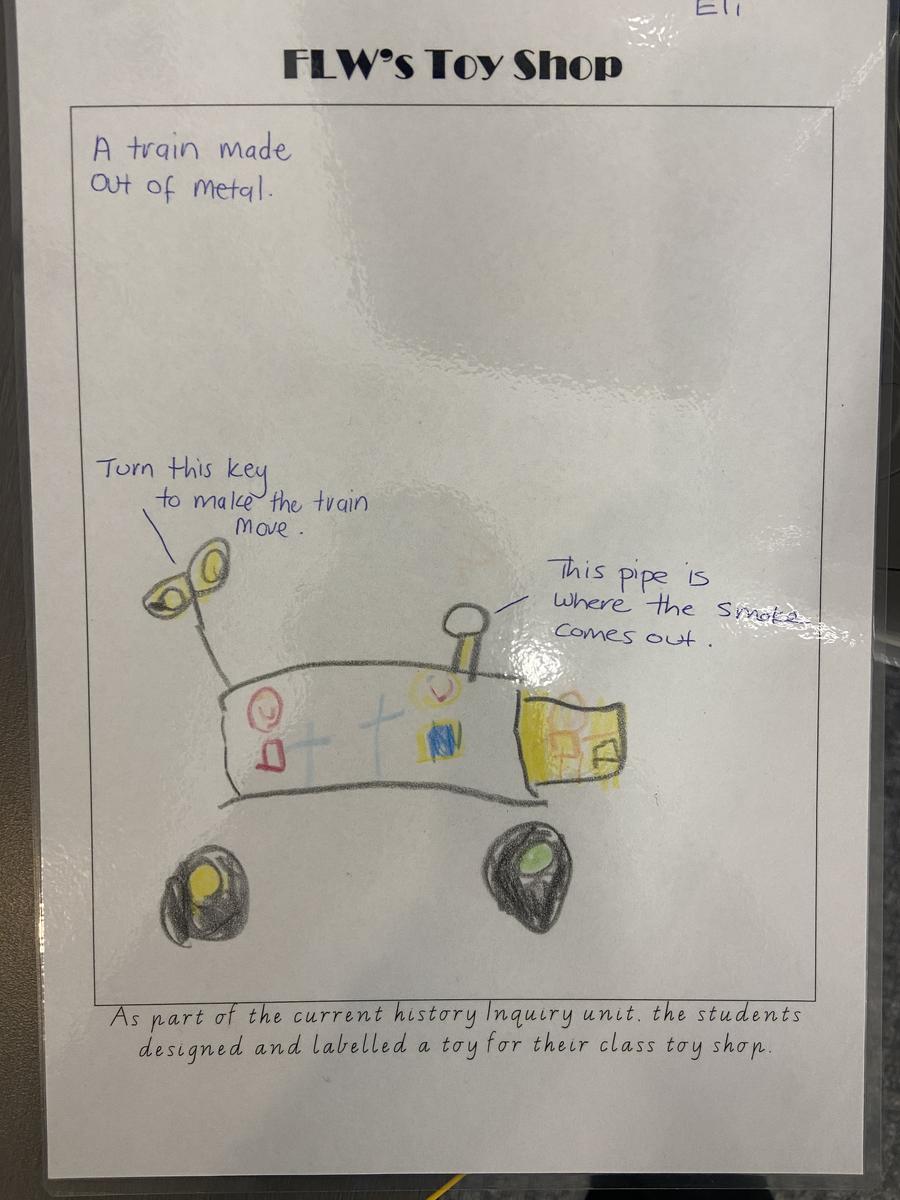 Eli
FLW's Toy Shop
A train made
out of metal.
Turn this key
to make the train
move.
This pipe is
where the smoke
comes out.
As part of the current history Inquiry unit. the students
designed and labelled a toy for their class toy shop.